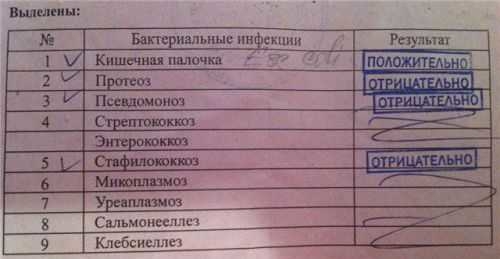 Выделены:
№ Бактериальные инфекции Результат
1 Кишечная палочка coli ПОЛОЖИТЕЛЬНО
2 Протеоз ОТРИЦАТЕЛЬНО
3 Псевдомоноз ОТРИЦАТЕЛЬНО
4 Стрептококкоз
Энтерококкоз
5 Стафилококкоз ОТРИЦАТЕЛЬНО
6 Микоплазмоз
7 Уреаплазмоз
8 Сальмонееллез
9 Клебсиеллез